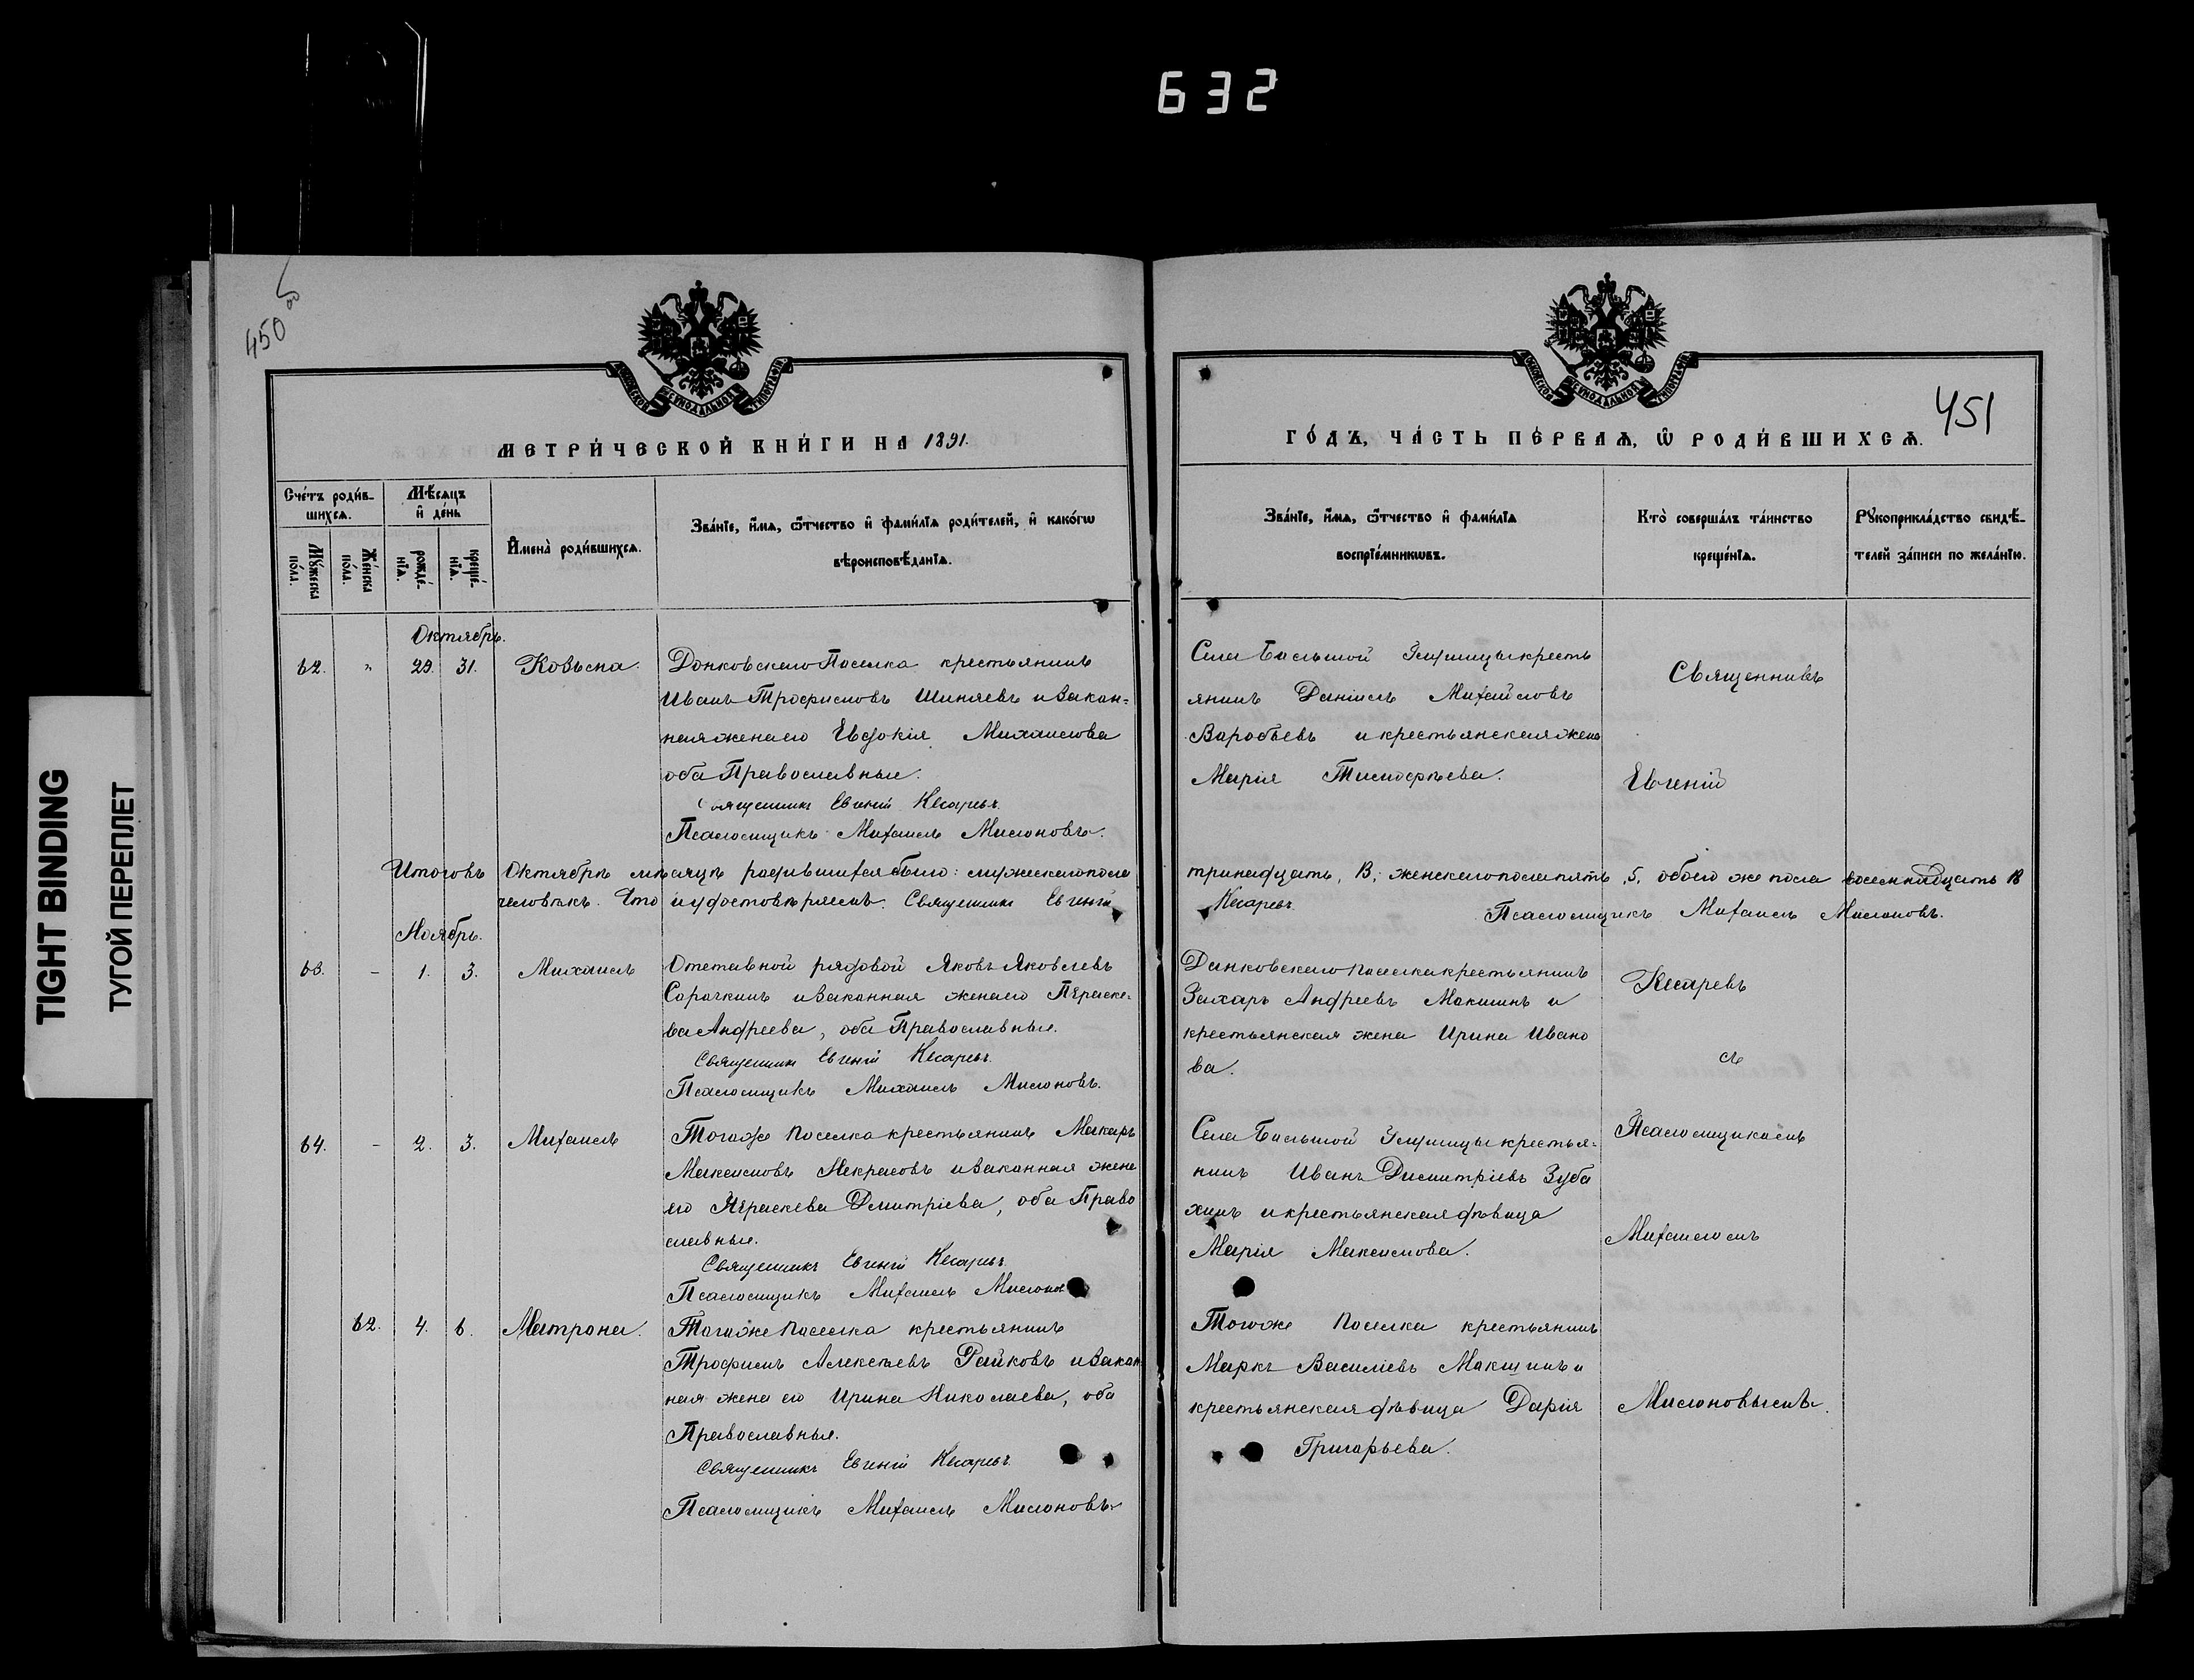 632
TIGHT BINDING
ТУГОЙ ПЕРЕПЛЕТ
450 об
451
МОСКОВСКОЙ СѴНОДАЛЬНОЙ ТИПОГРАФІИ
МОСКОВСКОЙ СѴНОДАЛЬНОЙ ТИПОГРАФІИ
МЕТРИ́ЧЕСКОЙ КНИ́ГИ НА 1891.
ГО́ДЪ, ЧА́СТЬ ПЕ́РВАѦ, Ѿ РОДИ́ВШИХСѦ.
Сче́тъ роди́в-
шихсѧ.
Мꙋ́жеска по́ла.
Же́нска по́ла.
Мѣ́сѧцъ
и҆ де́нь
рожде́-нїѧ.
креще́-нїѧ.
И҆мена̀ роди́вшихсѧ.
Зва́нїе, и҆́мѧ, ѻ҆́тчество и҆ фами́лїѧ роди́телей, и҆ како́гѡ
вѣроисповѣ́данїѧ.
Зва́нїе, и҆́мѧ, ѻ҆́тчество и҆ фами́лїѧ
воспрїе́мникѡвъ.
Кто̀ соверша́лъ та́инство
креще́нїѧ.
Рꙋкоприкла́дство свидѣ́-
телей за́писи по жела́нїю.
Октябрь.
62. " 29. 31. Козьма.
Донковскаго Поселка крестьянинъ
Иванъ Трофимовъ Шиняевъ и закон=
ная жена его Евдокія Михаилова
оба Православные.
Священникъ Евгеній Кесаревъ.
Псаломщикъ Михаилъ Милоновъ.
Села Большой Ижмицы кресть
янинъ Даніилъ Михайловъ
Воробьевъ и крестьянская жена
Марія Тимофѣева.
Священникъ
Евгеній
Итого въ Октябрѣ мѣсяцѣ родившихся было: мужескаго пола тринадцать, 13, женскаго пола пять, 5, обоего же пола восемнадцать 18
человѣкъ. Что и удостовѣряемъ. Священникъ Евгеній Кесаревъ. Псаломщикъ Михаилъ Милоновъ.
Ноябрь.
63. - 1. 3. Михаилъ
Отставной рядовой Яковъ Яковлевъ
Сорочкинъ и законная жена его Параске=
ва Андреева, оба Православные.
Священникъ Евгеній Кесаревъ.
Псаломщикъ Михаилъ Милоновъ.
Данковскаго поселка крестьянинъ
Захаръ Андреевъ Макшинъ и
крестьянская жена Ирина Ивано
ва.
Кесаревъ
съ
64. - 2. 3. Михаилъ
Тогоже поселка крестьянинъ Макаръ
Максимовъ Некрасовъ и законная жена
его Параскева Дмитріева, оба Право
славные.
Священникъ Евгеній Кесаревъ.
Псаломщикъ Михаилъ Милонов
Села Большой Ижмицы крестья=
нинъ Иванъ Димитріевъ Зуба
хинъ и крестьянская дѣвица
Марія Максимова.
Псаломщикомъ
Михаиломъ
62. 4. 6. Матрона.
Тогоже поселка крестьянинъ
Трофимъ Алексѣевъ Райковъ и закон
ная жена его Ирина Николаева, оба
Православныя.
Священникъ Евгеній Кесаревъ.
Псаломщикъ Михаилъ Милоновъ
Тогоже поселка крестьянинъ
Маркъ Василіевъ Макшинъ и
крестьянская дѣвица Дарія
Григорьева.
Милоновымъ.